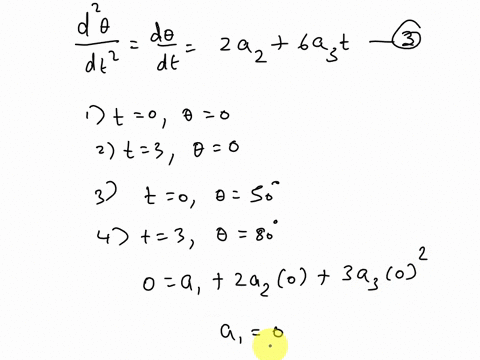 d²θ/dt² = dθ/dt = 2a₂ + 6a₃t — ③
1) t=0, θ=0
2) t=3, θ=0
3) t=0, θ=50°
4) t=3, θ=80°
0 = a₁ + 2a₂(0) + 3a₃(0)²
a₁ = 0